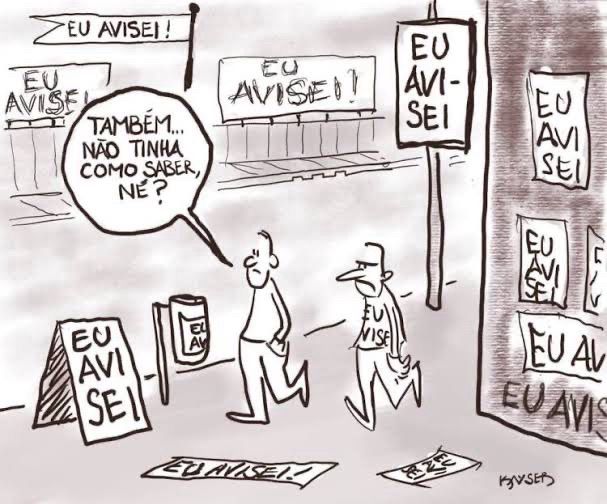 EU AVISEI!
EU
AVISEI
EU
AVISEI!
EU
AVI-
SEI
TAMBÉM...
NÃO TINHA
COMO SABER,
NÉ?
EU
AVI
SEI
EU
AVI
SEI!
EU AV
EU AVIS
EU
VISE
EU
AV
EU
AVI
SEI
EU AVISEI!
KAYSER